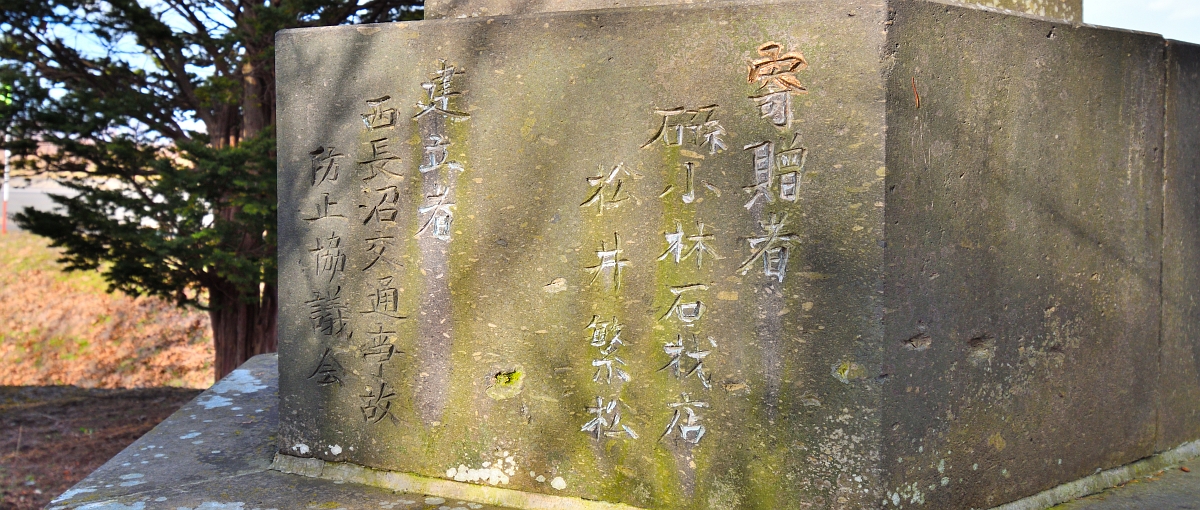 寄贈者
磯小林石材店
松井繁松
建立者
西長沼交通事故
防止協議会